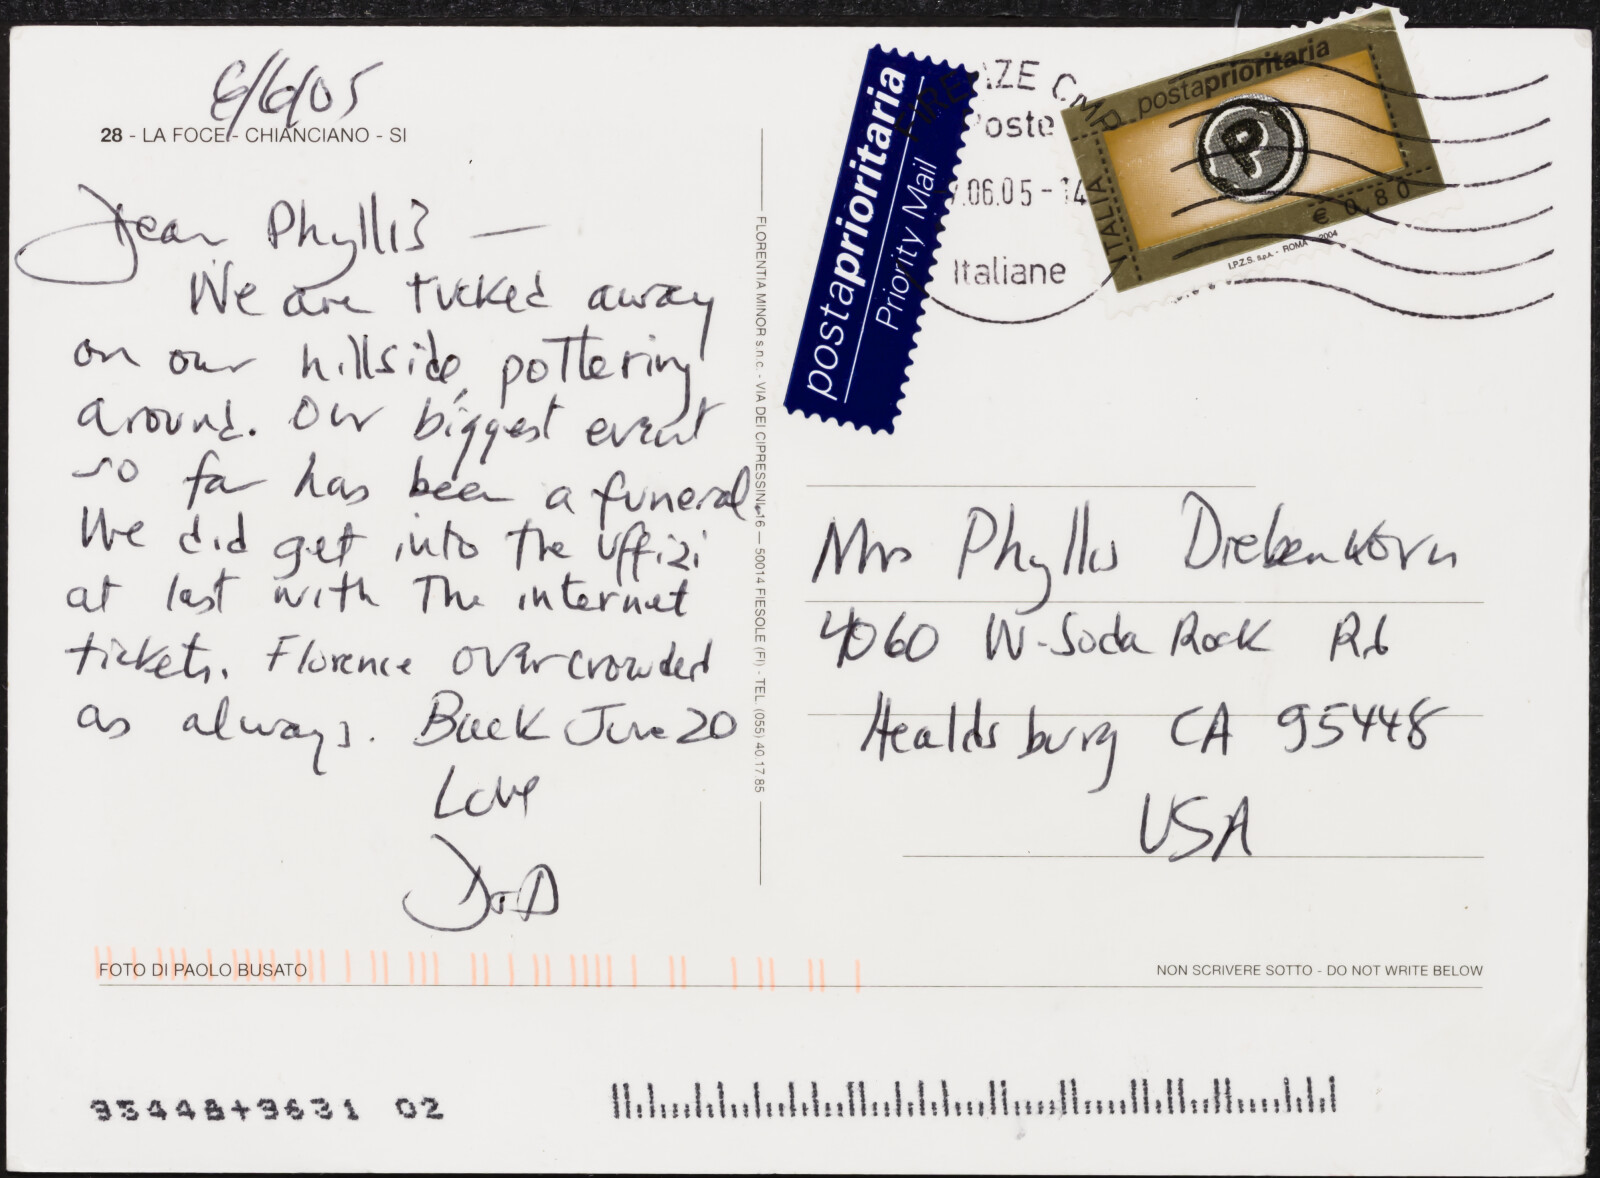 6/6/05
28 - LA FOCE - CHIANCIANO - SI
Dear Phyllis —
We are tucked away
on our hillside, pottering
around. Our biggest event
so far has been a funeral.
We did get into the Uffizi
at last with the internet
tickets. Florence overcrowded
as always. Back June 20
Love
FOTO DI PAOLO BUSATO
95448+9631 02
FLORENTIA MINOR s.n.c. - VIA DEI CIPRESSINI, 16 — 50014 FIESOLE (FI) - TEL. (055) 40.17.85
postaprioritaria
Priority Mail
FIRENZE CMP
Poste
.06.05-14
Italiane
postaprioritaria
P
ITALIA
€ 0,80
I.P.Z.S. S.p.A. - ROMA - 2004
Mrs Phyllis Diebenkorn
4060 W-Soda Rock Rd
Healdsburg CA 95448
USA
NON SCRIVERE SOTTO - DO NOT WRITE BELOW